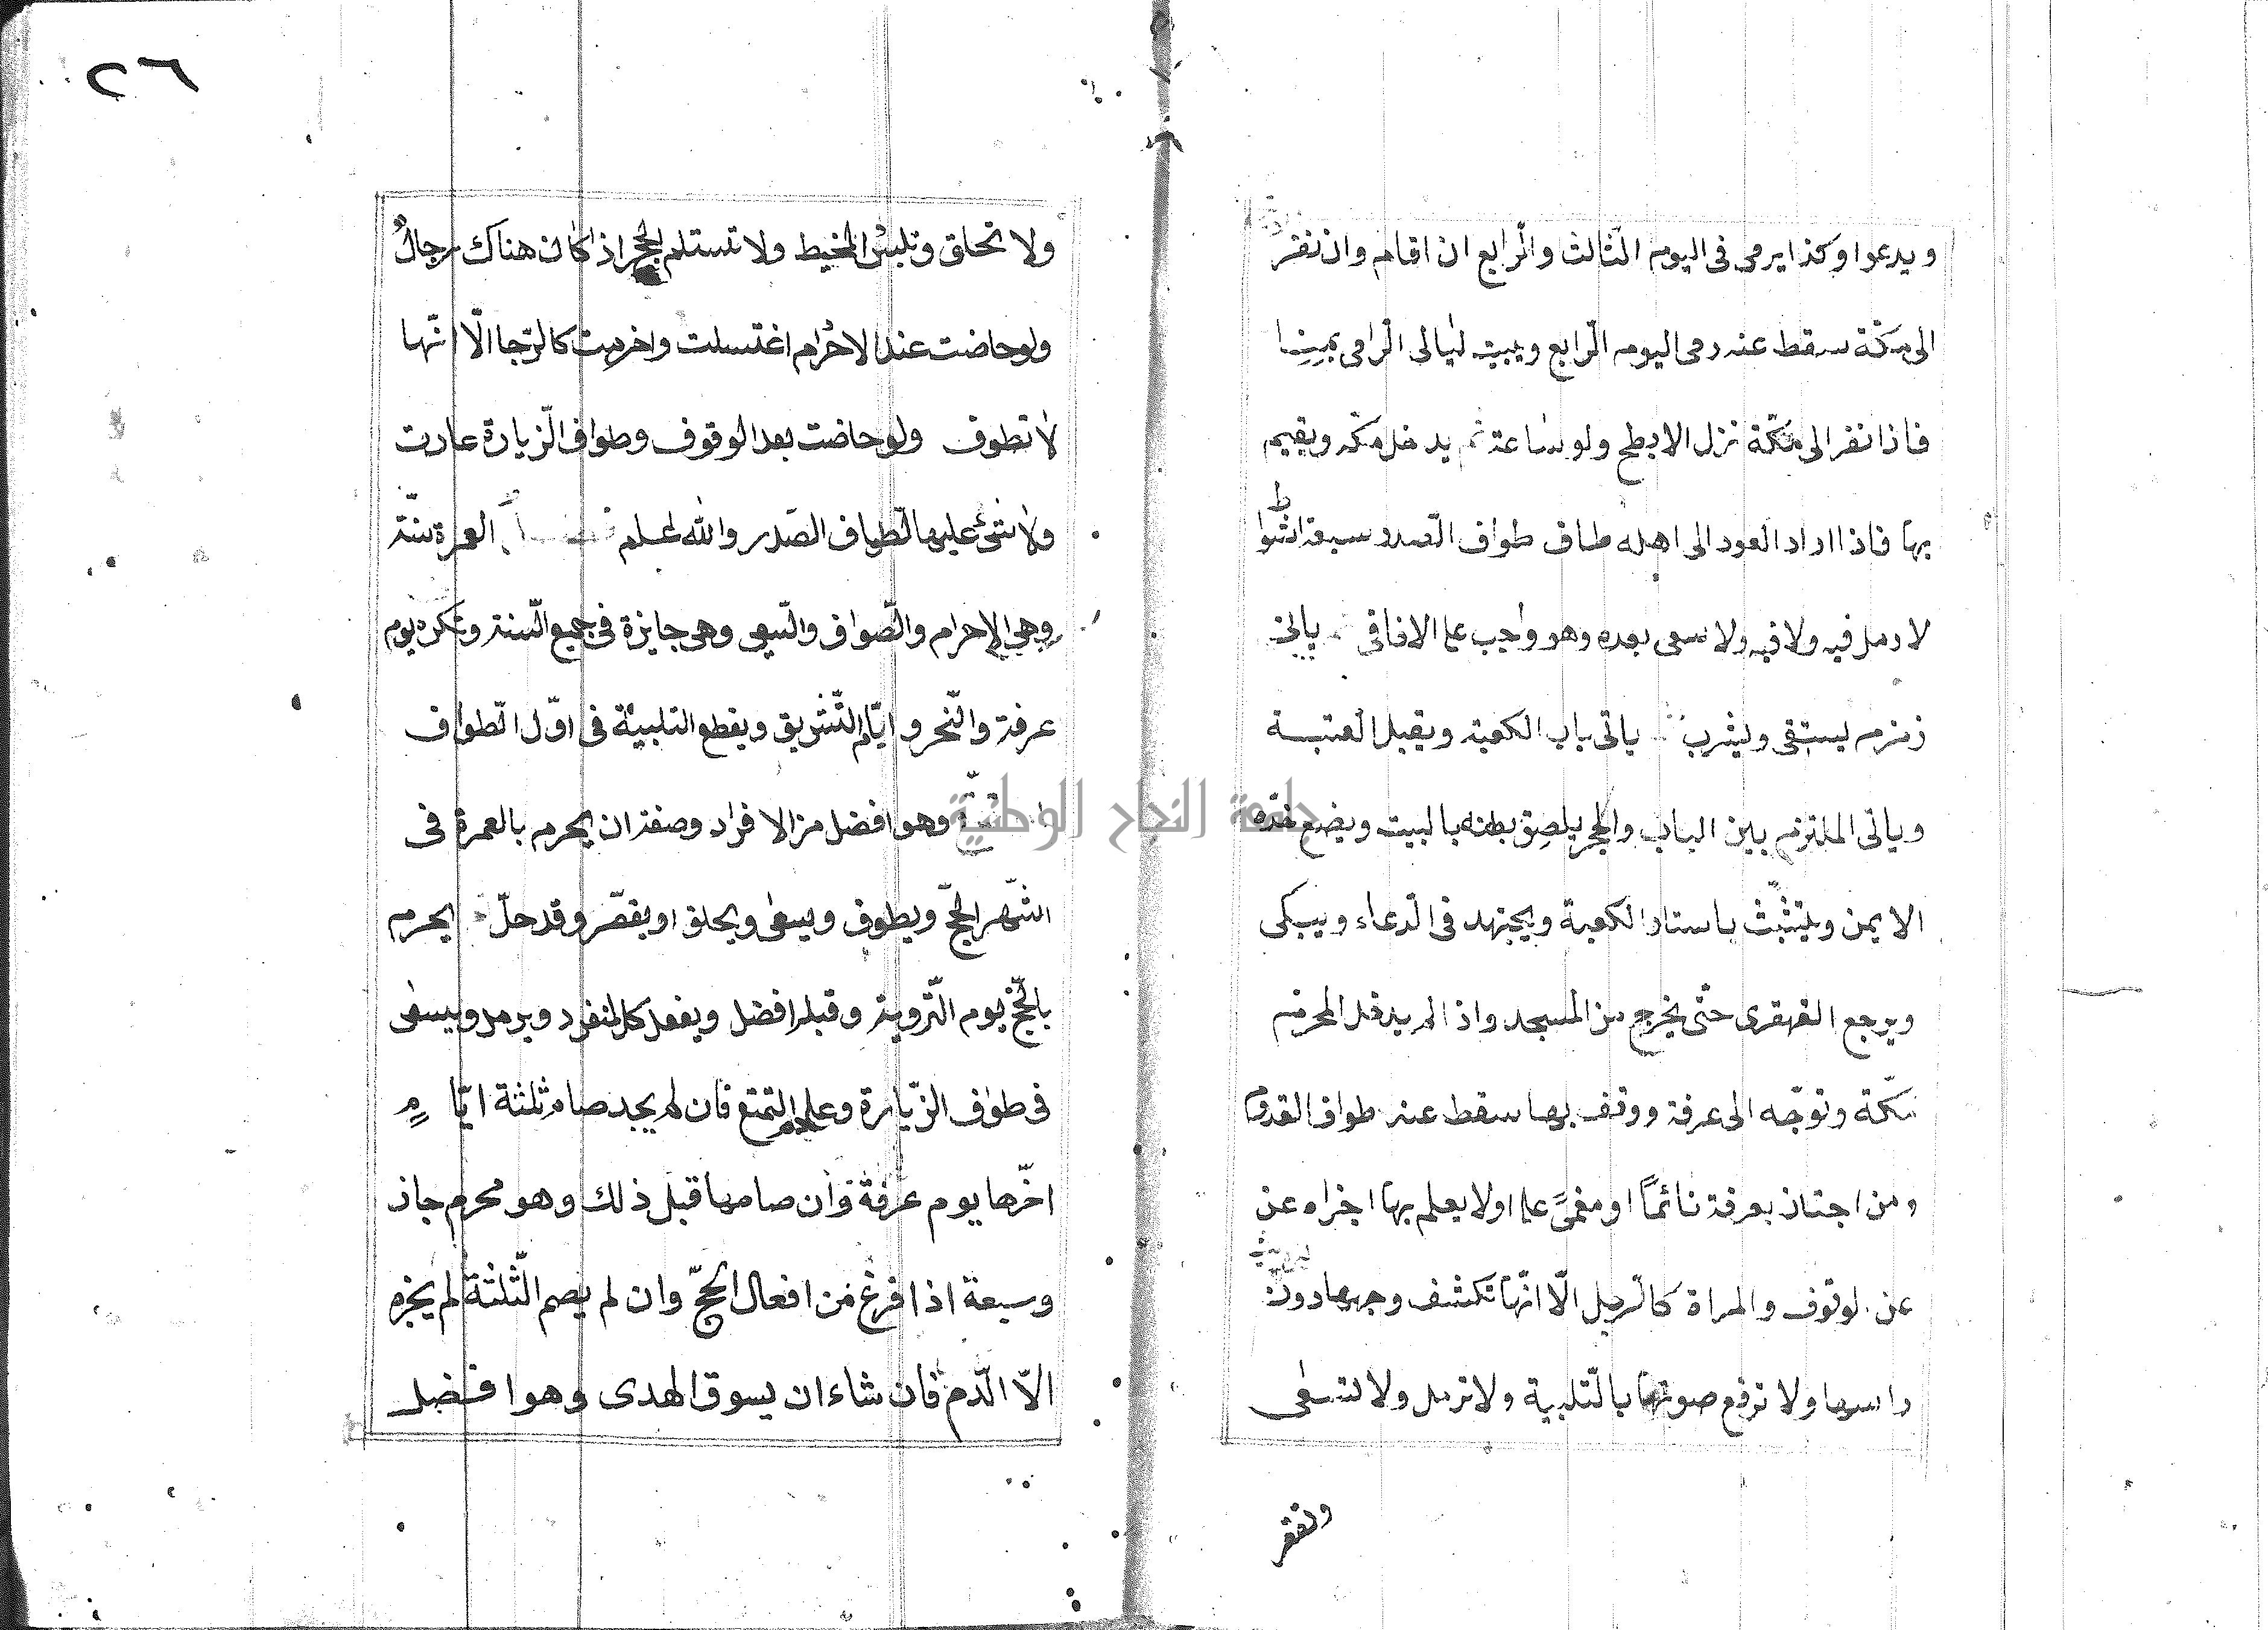 ويدعوا وكذا يرمى فى اليوم الثّالث والرّابع ان اقام وان نفر
الى مكّة سقط عنه رمى اليوم الرّابع ويبيت ليالى الرّامى بمنا
فاذا نفر الى مكّة نزل الابطح ولو ساعة ثم يدخل مكه ويقيم
بها فاذا اراد العود الى اهله طاف طواف الصّدر سبعة اشوا
ط
لا رمل فيه ولا فيه ولا سعى بعده وهو واجب على الافاقى ياتى
زمزم ليستقى وليشرب ياتى باب الكعبة ويقبل العتبة
وياتى الملتزم بين الباب والحجر يلصق بطنه بالبيت ويضع خدّه
الايمن ويتشبّث باستار الكعبة ويجتهد فى الدّعاء ويبكى
ويرجع القهقرى حتّى يخرج من المسجد واذا لم يدخل المحرم
مكّة وتوجّه الى عرفة ووقف بها سقط عنه طواف القدوم
ومن اجتاز بعرفة نائمًا او مغمىً عليه او لا يعلم بها اجزاه عن
عن لوقوف والمراة كالرّجل الّا انّها تكشف وجهها دون
راسها ولا ترفع صوتها بالتّلبية ولا ترمل ولا تسعى
وتقصر
٢٦
ولا تحلق وتلبس المخيط ولا تستلم الحجر اذ كان هناك رجالٌ
ولو حاضت عند الاحرام اغتسلت واحرمت كالرّجا الّا انّها
لا تطوف ولو حاضت بعد الوقوف وطواف الزّيارة عادت
ولا شئ عليها لطواف الصّدر والله اعلم العمرة سنّة
وهي الاحرام والطّواف والسّعى وهى جايزة فى جميع السّنة وتكره يوم
عرفة والنّحر و ايّام التّشريق ويقطع التلبية فى اوّل الطّواف
وهو افضل من الافراد وصفته ان يحرم بالعمرة فى
اشهر الحجّ ويطوف ويسعى ويحلق او يقصّر وقد حلّ يحرم
بالحجّ يوم التّروية وقبله افضل ويفعل كالمنفرد ويرمل ويسعى
فى طواف الزّيارة وعليه دم التمتع فان لم يجد صام ثلثة ايّا مٍ
اخّرها يوم عرفة وان صامها قبل ذلك وهو محرم جاز
وسبعة اذا فرغ من افعال الحجّ وان لم يصم الثّلثة لم يجزه
الّا الدّم فان شاء ان يسوق الهدى وهو افضل
جامعة النجاح الوطنية